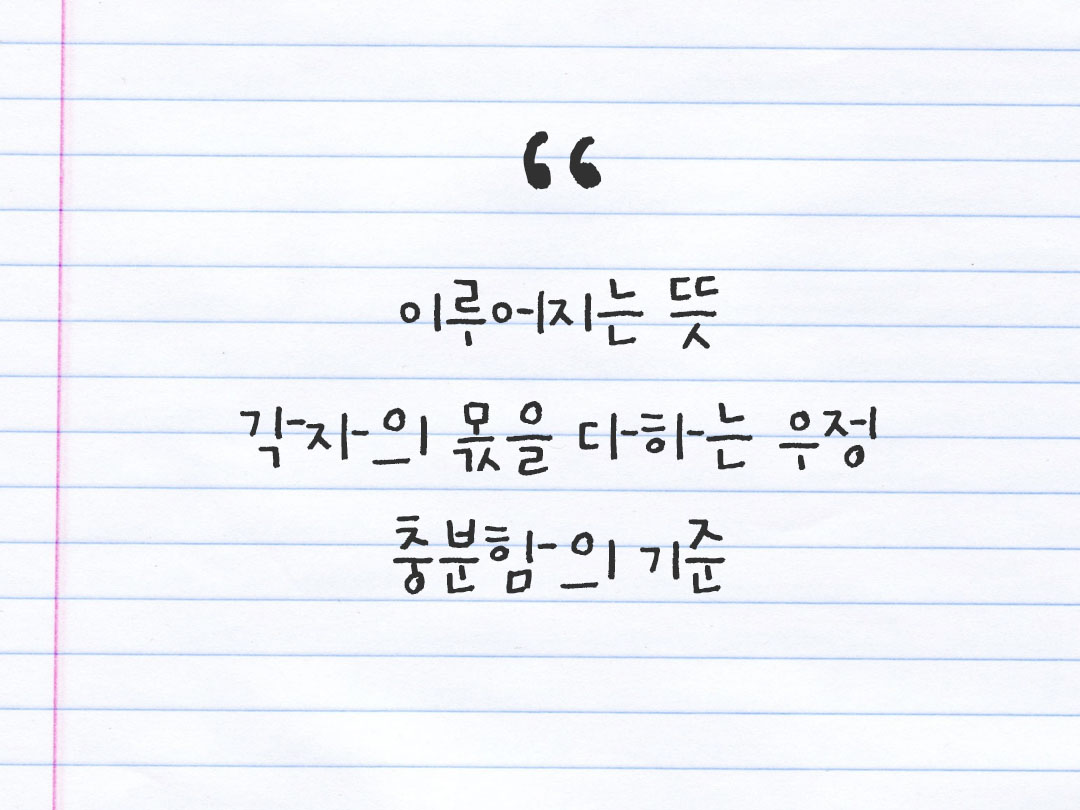 “
이루어지는 뜻
각자의 몫을 다하는 우정
충분함의 기준